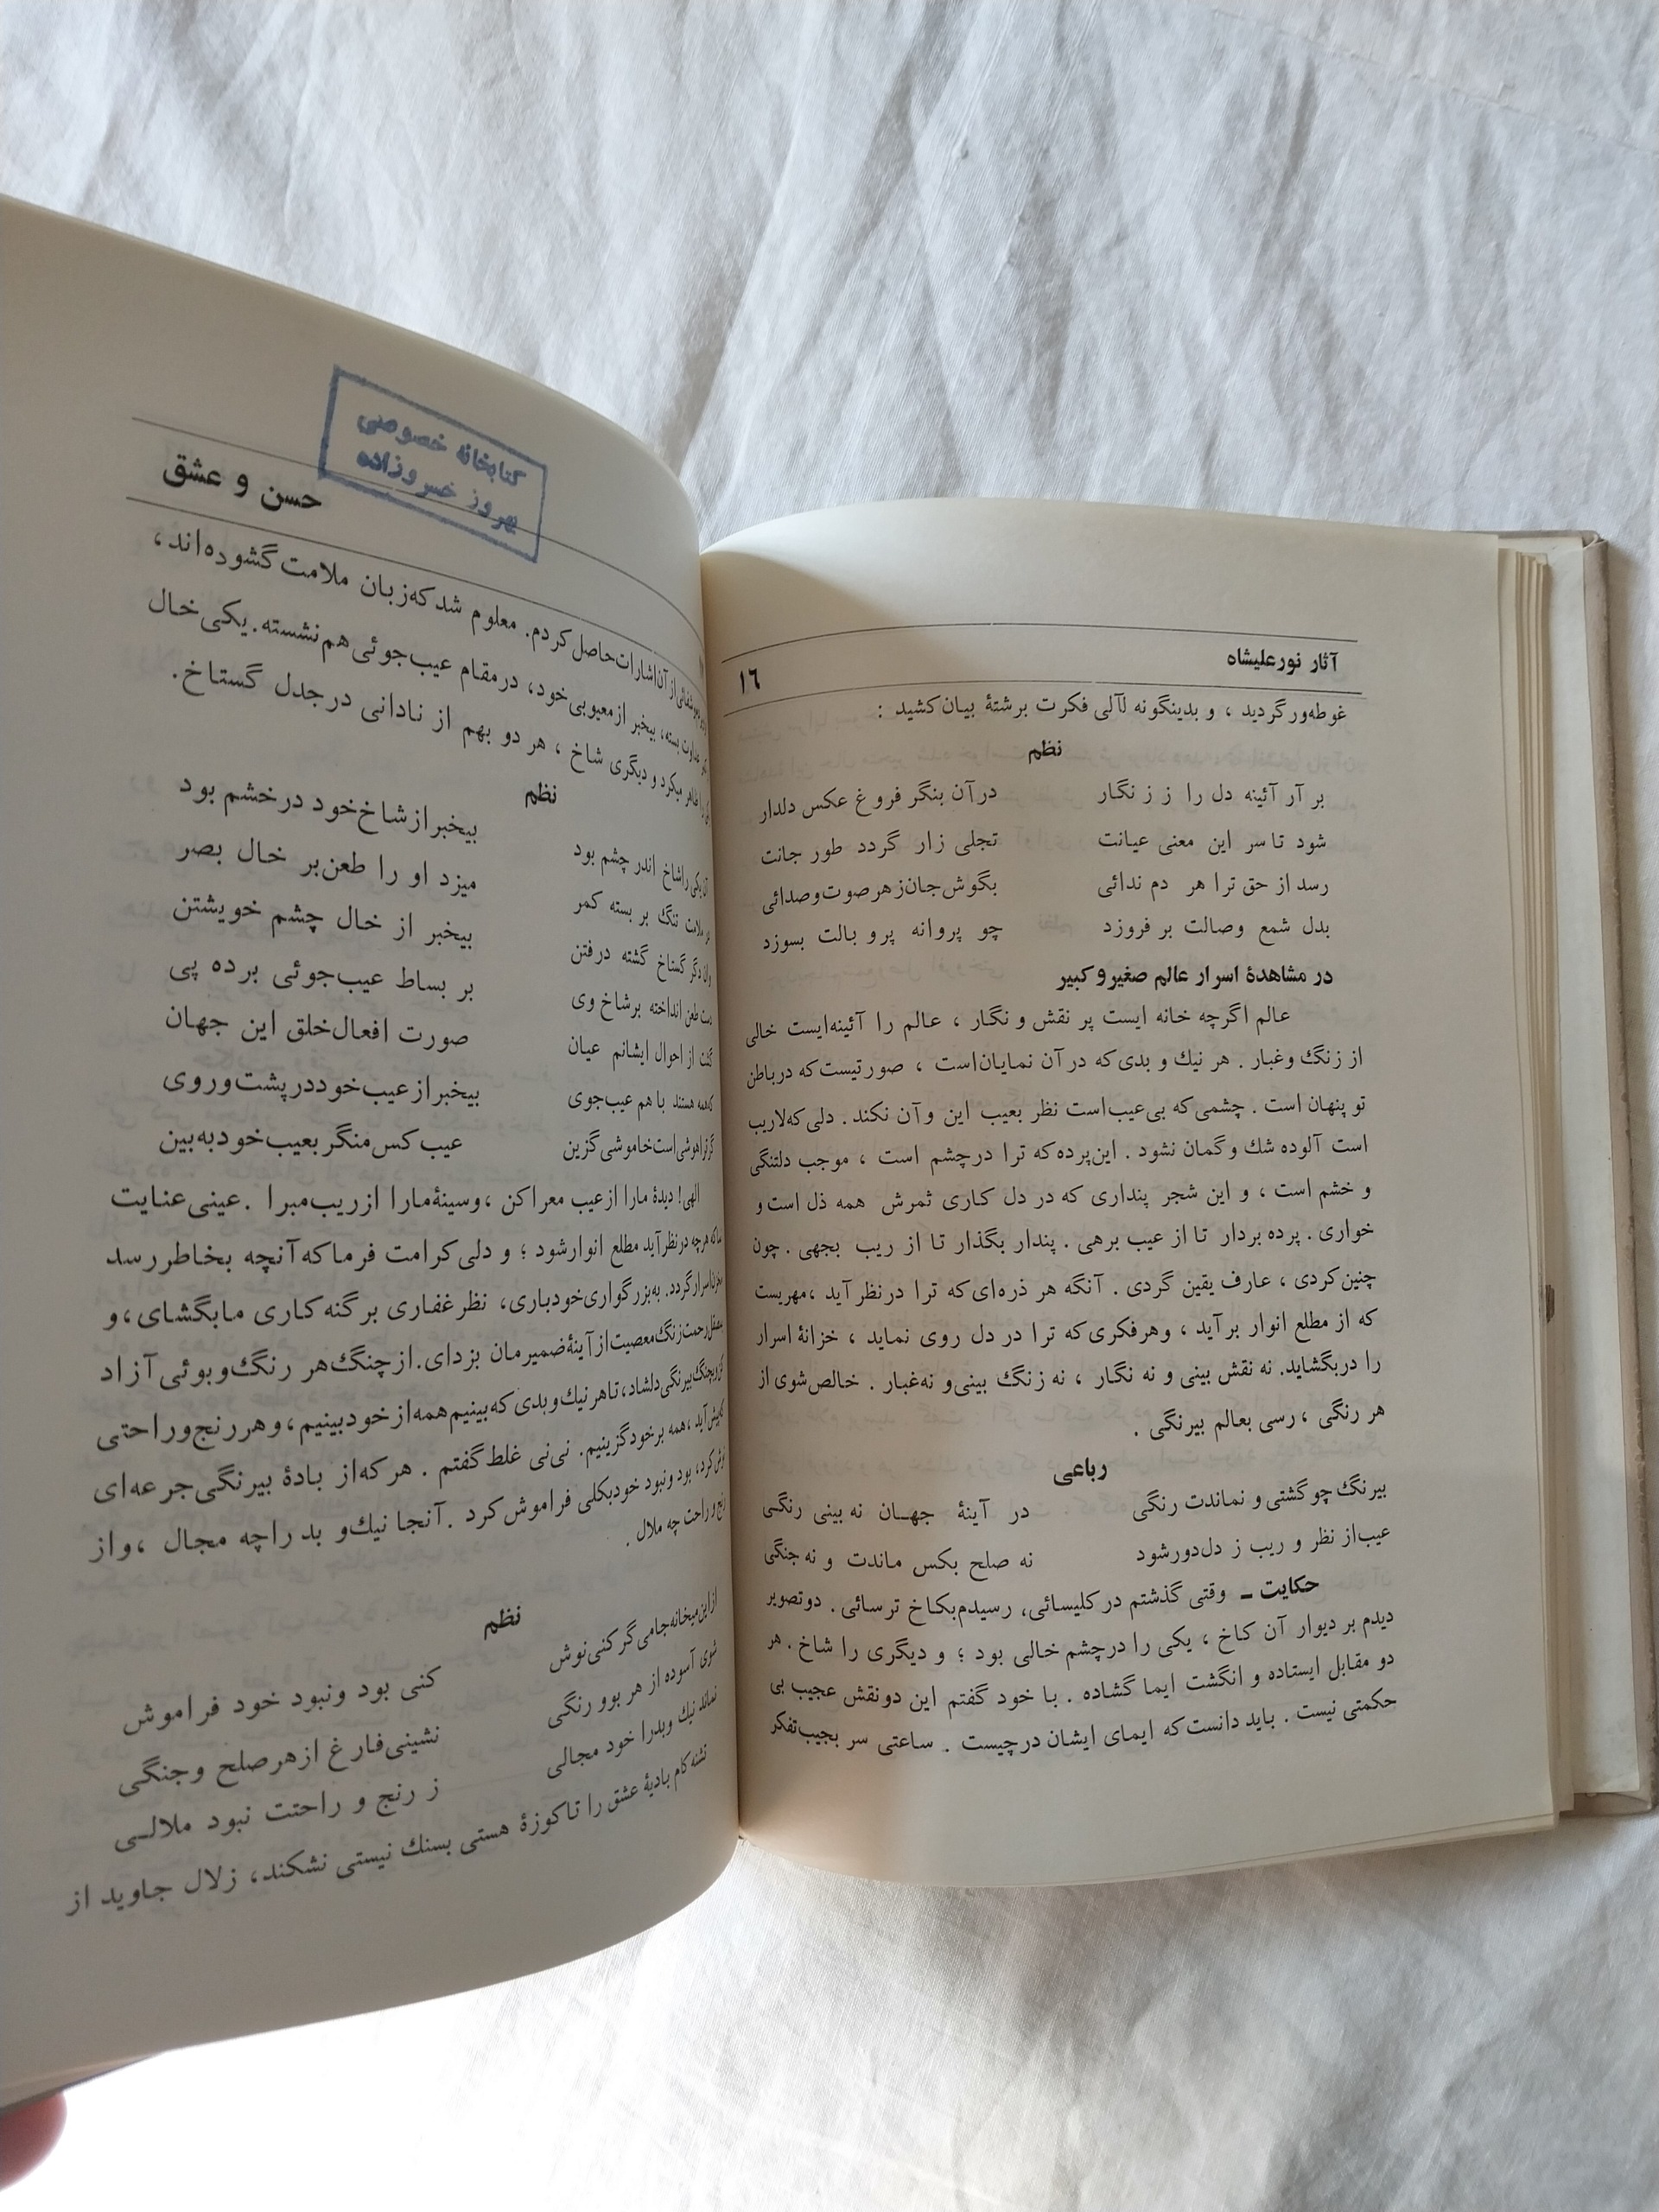 آثار نورعلیشاه
١٦
غوطه‌ور گردید ، و بدینگونه لآلی فکرت برشتهٔ بیان کشید :
نظم
بر آر آئینه دل را ز زنگار در آن بنگر فروغ عکس دلدار
شود تا سر این معنی عیانت تجلی زار گردد طور جانت
رسد از حق ترا هر دم ندائی بگوش جان ز هر صوت و صدائی
بدل شمع وصالت بر فروزد چو پروانه پر و بالت بسوزد
در مشاهدهٔ اسرار عالم صغیر و کبیر
عالم اگرچه خانه ایست پر نقش و نگار ، عالم را آئینه‌ایست خالی
از زنگ وغبار . هر نیك و بدی که در آن نمایان است ، صورتیست که در باطن
تو پنهان است . چشمی که بی‌عیب است نظر بعیب این و آن نکند . دلی که لاریب
است آلوده شك و گمان نشود . این پرده که ترا در چشم است ، موجب دلتنگی
و خشم است ، و این شجر پنداری که در دل کاری ثمرش همه ذل است و
خواری . پرده بردار تا از عیب برهی . پندار بگذار تا از ریب بجهی . چون
چنین کردی ، عارف یقین گردی . آنگه هر ذره‌ای که ترا در نظر آید ، مهریست
که از مطلع انوار برآید ، و هر فکری که ترا در دل روی نماید ، خزانهٔ اسرار
را در بگشاید. نه نقش بینی و نه نگار ، نه زنگ بینی و نه غبار . خالص شوی از
هر رنگی ، رسی بعالم بیرنگی .
رباعی
بیرنگ چو گشتی و نماندت رنگی در آینهٔ جهان نه بینی رنگی
عیب از نظر و ریب ز دل دور شود نه صلح بکس ماندت و نه جنگی
حکایت ـ وقتی گذشتم در کلیسائی، رسیدم بکاخ ترسائی . دو تصویر
دیدم بر دیوار آن کاخ ، یکی را در چشم خالی بود ؛ و دیگری را شاخ . هر
دو مقابل ایستاده و انگشت ایما گشاده . با خود گفتم این دو نقش عجیب بی
حکمتی نیست . باید دانست که ایمای ایشان در چیست . ساعتی سر بجیب تفکر
کتابخانه خصوصی
بهروز خسروزاده
حسن و عشق
از آن اشارات حاصل کردم. معلوم شد که زبان ملامت گشوده‌اند،
بسته، بیخبر از معیوبی خود، در مقام عیب جوئی هم نشسته. یکی خال
را ظاهر میکرد و دیگری شاخ ، هر دو بهم از نادانی در جدل گستاخ.
نظم
آن یکی را شاخ اندر چشم بود بیخبر از شاخ خود در خشم بود
ملامت تنگ بر بسته کمر میزد او را طعن بر خال بصر
وان دگر گستاخ گشته در فتن بیخبر از خال چشم خویشتن
دست طعن انداخته بر شاخ وی بر بساط عیب جوئی برده پی
گفت از احوال ایشانم عیان صورت افعال خلق این جهان
که همه هستند با هم عیب جوی بیخبر از عیب خود در پشت و روی
گر ترا هوشی است خاموشی گزین عیب کس منگر بعیب خود به بین
الهی! دیدهٔ ما را از عیب معرا کن ، و سینهٔ ما را از ریب مبرا . عینی عنایت
هرچه در نظر آید مطلع انوار شود ؛ و دلی کرامت فرما که آنچه بخاطر رسد
اسرار گردد. به بزرگواری خود باری، نظر غفاری بر گنه کاری ما بگشای، و
رحمت زنگ معصیت از آینهٔ ضمیرمان بزدای. از چنگ هر رنگ و بوئی آزاد
بیرنگی دلشاد، تا هر نیك و بدی که بینیم همه از خود بینیم ، و هر رنج و راحتی
پیش آید ، همه بر خود گزینیم. نی نی غلط گفتم . هر که از بادهٔ بیرنگی جرعه‌ای
نوش کرد، بود و نبود خود بکلی فراموش کرد . آنجا نیك و بد را چه مجال ، و از
رنج و راحت چه ملال .
نظم
از این میخانه جامی گر کنی نوش کنی بود ونبود خود فراموش
شوی آسوده از هر بو و رنگی نشینی فارغ از هر صلح و جنگی
نماند نیك و بد را خود مجالی ز رنج و راحتت نبود ملالـی
تشنه کام بادیهٔ عشق را تا کوزهٔ هستی بسنك نیستی نشکند، زلال جاوید از